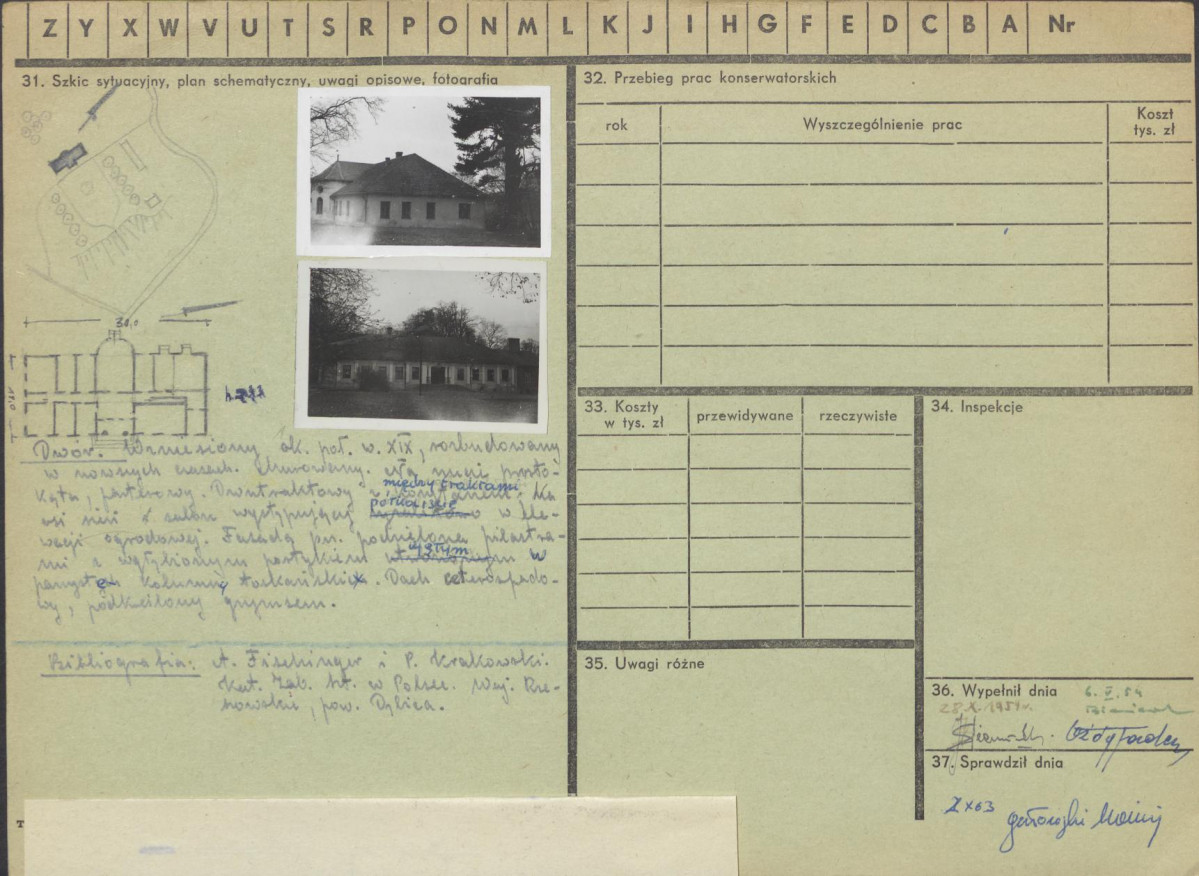 Z Y X W V U T S R P O N M L K J I H G F E D C B A Nr
31. Szkic sytuacyjny, plan schematyczny, uwagi opisowe, fotografia
30,0
17,0
Dwór. Wzniesiony ok. poł. w. XIX, rozbudowany
w nowszych czasach. Murowany. Na rzucie prosto-
kąta, parterowy. Dwutraktowy z
między traktami
korytarzem. Na
osi sień i salon występujący
półkoliście
w ele-
wacji ogrodowej. Fasada pn. podzielona pilastra-
mi z wgłębionym portykiem
wgłębnym
w
kolumn toskańskich. Dach czterospado-
wy, podkreślony gzymsem.
Bibliografia: A. Fischinger i P. Krakowski.
Kat. Zab. Szt. w Polsce. Woj. Rze-
szowskie, pow. Dębica.
32. Przebieg prac konserwatorskich
rok
Wyszczególnienie prac
Koszt
tys. zł
33. Koszty
w tys. zł
przewidywane
rzeczywiste
34. Inspekcje
35. Uwagi różne
36. Wypełnił dnia
6. V. 54
28.X.1959r.
37. Sprawdził dnia
X 63
T